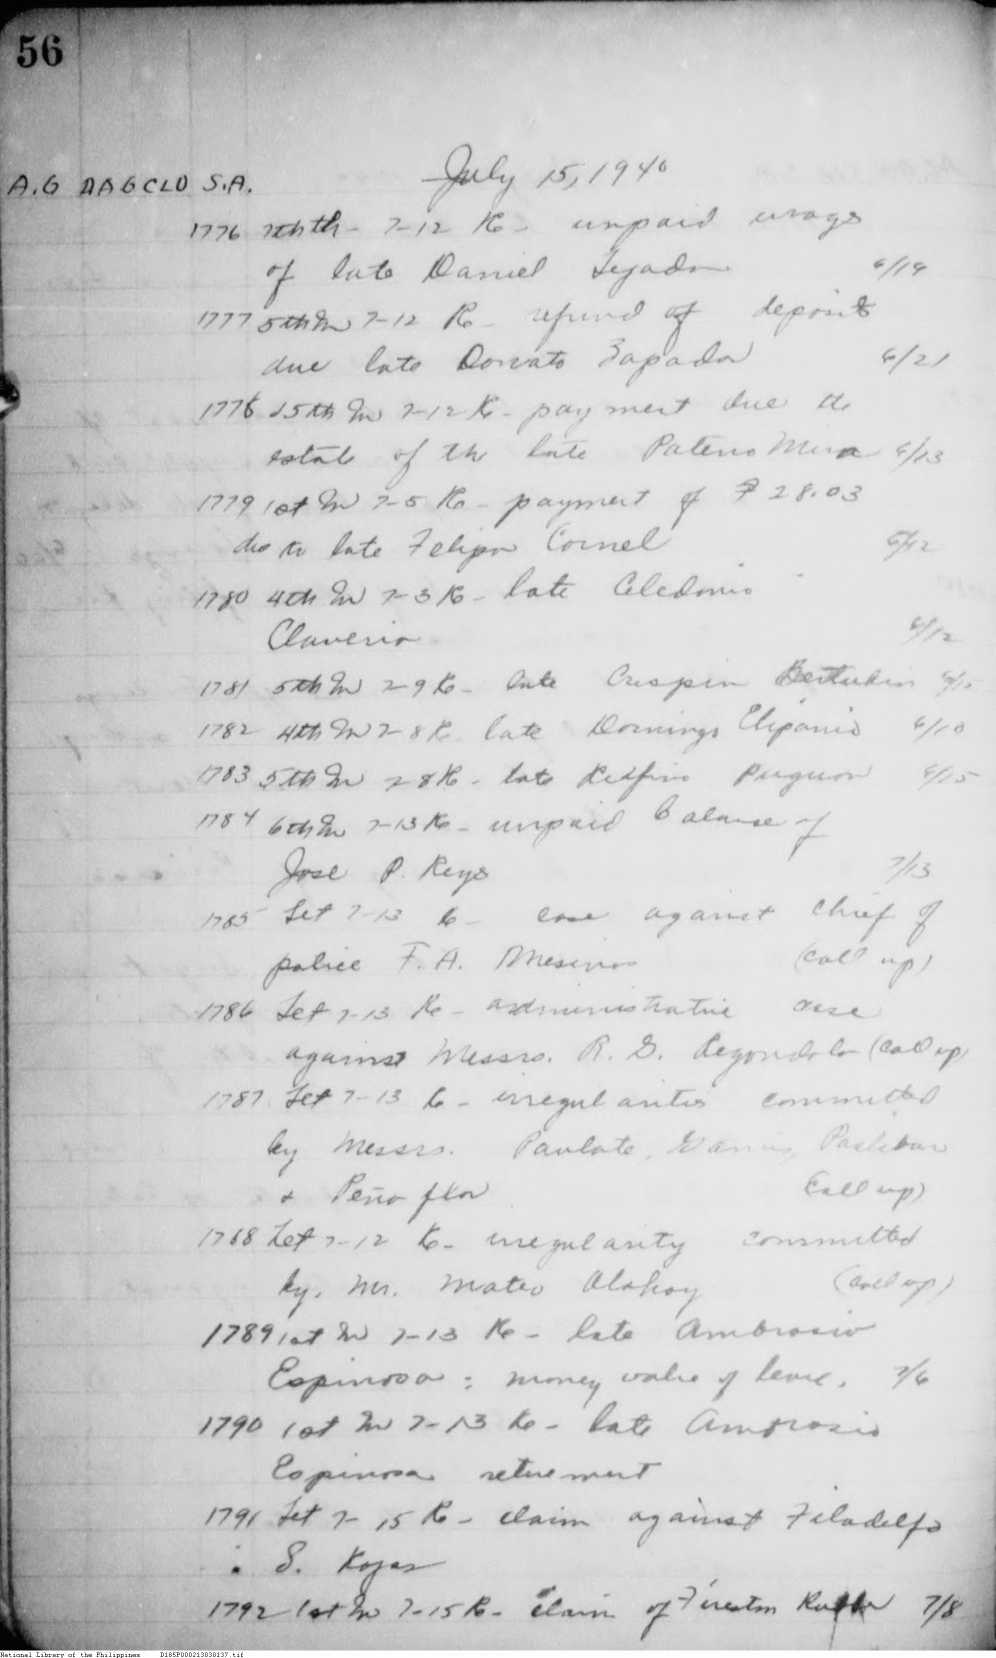 56
July 15, 1940
A.G DAGCLO S.A.
1776 7-12 Re- unpaid wages
of late Daniel Tejada 6/19
1777 5th In 7-12 Re- refund of deposits
due late Donato Zapada 6/21
1778 15th In 7-12 Re- payment due the
estate of the late Paterno Mira 6/13
1779 1st In 7-5 Re- payment of ₱ 28.03
due to late Felipa Cornel 6/12
1780 4th In 7-3 Re- late Celedonio
Claverio 6/12
1781 5th In 7-9 Re- late Crispin
1782 4th In 7-8 Re late Domingo Elipanio 6/10
1783 5th In 7-8 Re- late 6/15
1784 6th In 7-13 Re- unpaid balance of
Jose P. Reyes 7/13
1785 Let 7-13 Re- case against chief of
police F. A. Mesinas (call up)
1786 Let 7-13 Re- administrative case
against Messrs. R. G. Regondola (call up)
1787 Let 7-13 Re- irregularities committed
by Messrs. Paulate,
& Peñaflor (call up)
1788 Let 7-12 Re- irregularity committed
by Mr. Mateo (call up)
1789 1st In 7-13 Re- late Ambrosio
Espinosa : money value of leave. 7/6
1790 1st In 7-13 Re- late Ambrosio
Espinosa retirement
1791 Let 7-15 Re- claim against Filadelfo
S. Rojas
1792 1st In 7-15 Re- claim of 7/8
National Library of the Philippines D185P000213030137.tif